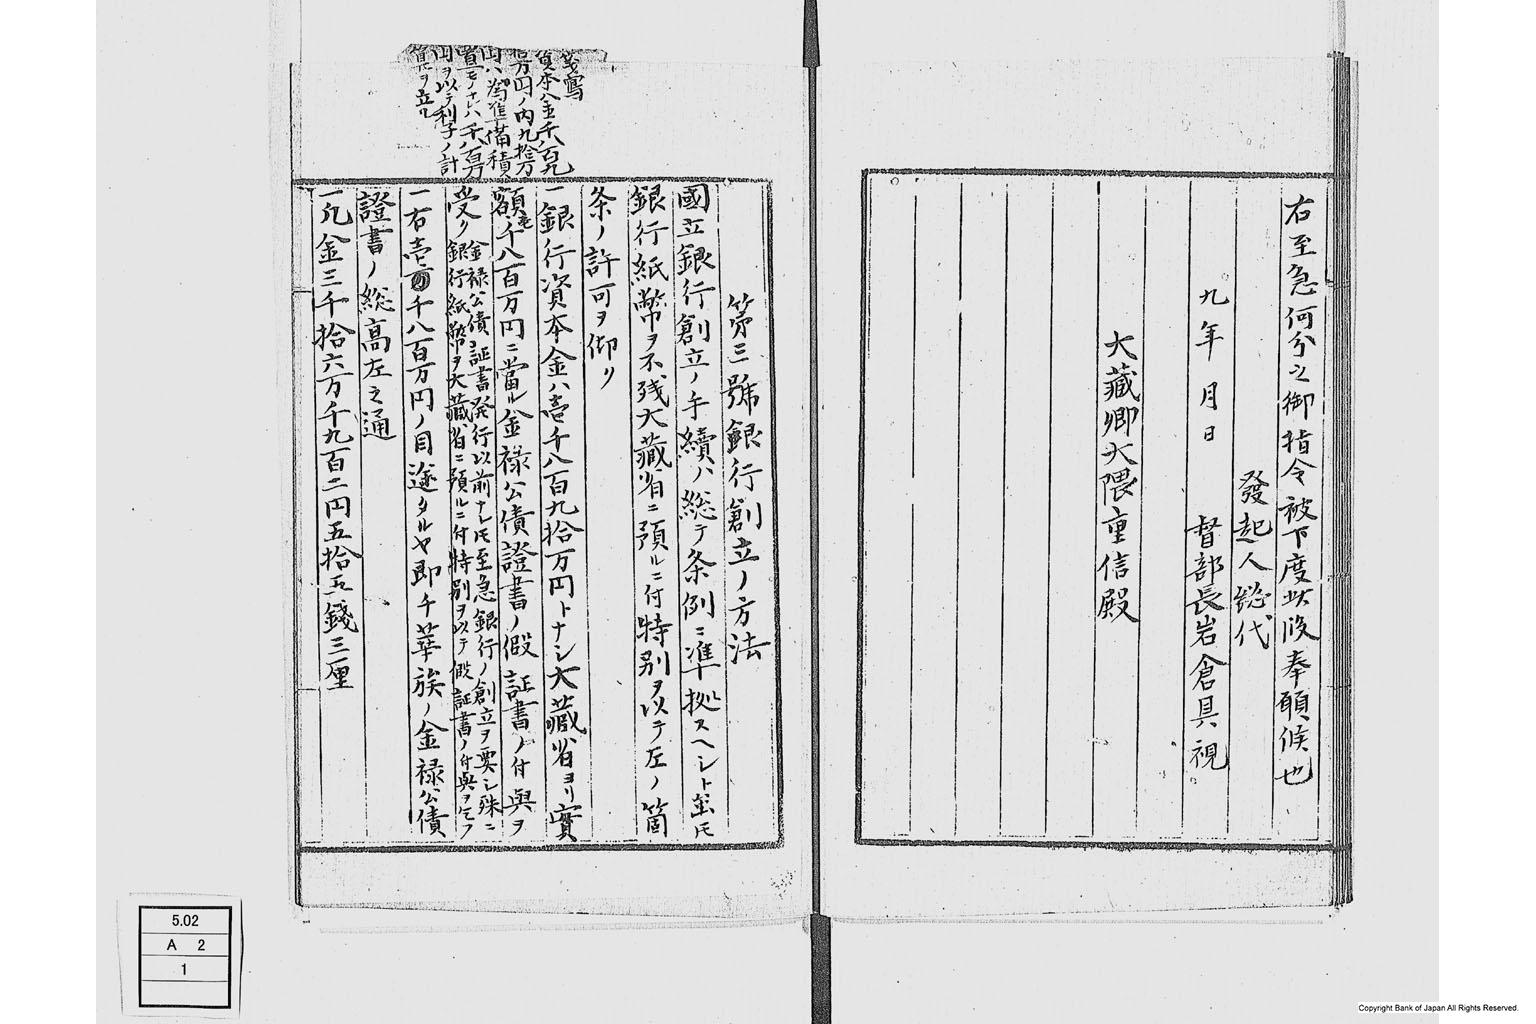 右至急何分之御指令被下度此段奉願候也
發起人総代
九年 月 日 督部長岩倉具視
大藏卿大隈重信殿
箋寫
資本ハ金千八百九
拾万円ノ内九拾万
円ハ為準備積
置モノナレハ千八百万
円ヲ以テ利子ノ計
算ヲ立ル
第三號銀行創立ノ方法
國立銀行創立ノ手續ハ総テ条例ニ準拠スヘシト虽𪜈
銀行紙幣ヲ不残大藏省ニ預ルニ付特別ヲ以テ左ノ箇
条ノ許可ヲ仰リ
一銀行資本金ハ壱千八百九拾万円トナシ大藏省ヨリ實
額壱千八百万円ニ當ル金禄公債證書ノ假証書ノ付與ヲ
受ク金禄公債証書発行以前ナレ𪜈至急銀行ノ創立ヲ要シ殊ニ
銀行紙幣ヲ大藏省ニ預ルニ付特別ヲ以テ假証書ノ付與ヲ乞フ
一右壱千八百万円ノ目途タルヤ即チ華族ノ金禄公債
證書ノ総高左之通
一凡金三千拾六万千九百二円五拾五錢三厘
5.02
A 2
1
Copyright Bank of Japan All Rights Reserved.